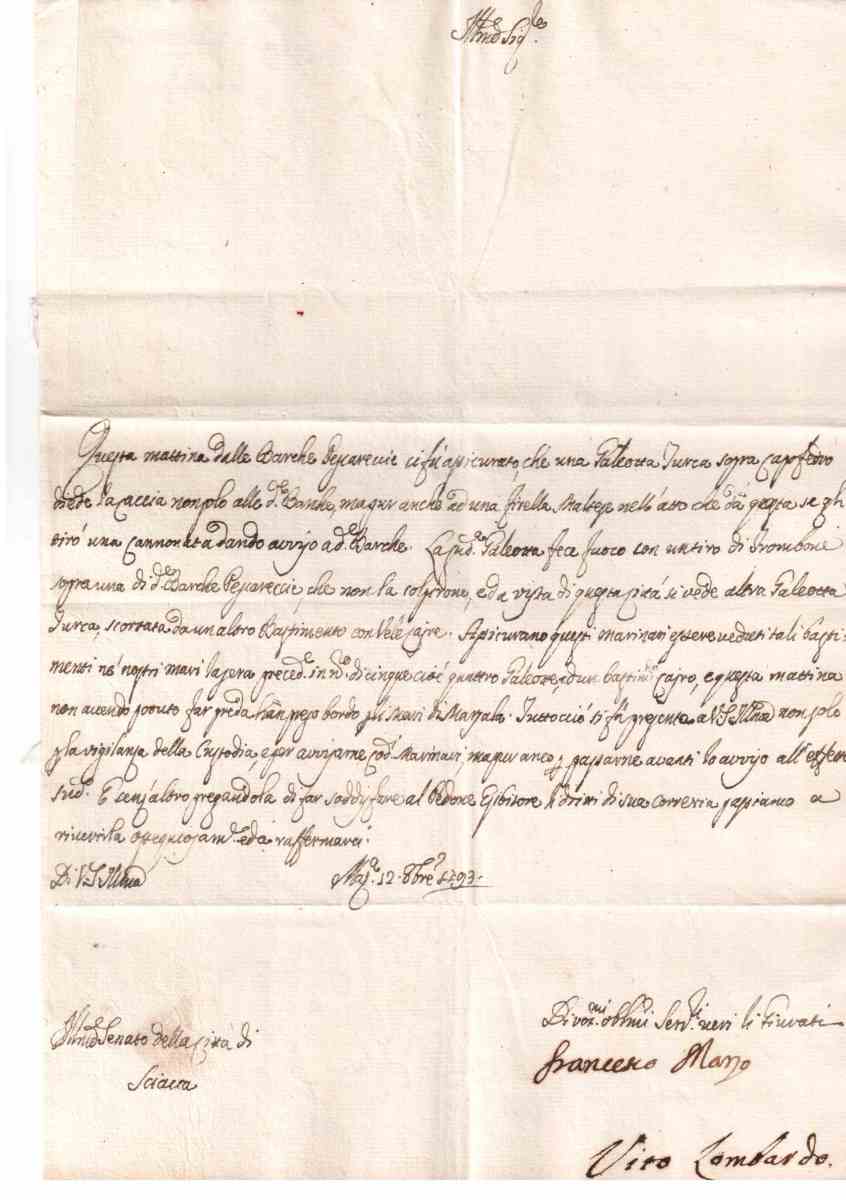 Ill.mo Sig.re
Questa mattina dalle Barche Pescareccie ci fù assicurato, che una Galeotta Turca sopra Capo feto
diede la caccia non solo alle d.e Barche, ma pur anche ad una sirella Maltese nell'atto che da questa se gli
tirò una cannonata dando avviso a d.e Barche. La sud.a Galeotta fece fuoco con un tiro di Trombone
sopra una di d.e Barche Pescareccie, che non la colpirono, ed a vista di questa Città si vede altra Galeotta
Turca, scortata da un altro Bastimento con Vele Assicurano questi marinari essere veduti tali basti-
menti nè nostri mari la sera preced.e in n.o di cinque cioè quattro Galeotte, ed un bastim.o e questa mattina
non avendo potuto far preda han preso bordo gli Mari di Marsala. Tuttocciò si fà presente a V.S. Ill.ma non solo
p la vigilanza della Custodia, e per avvisarne cod.i Marinari, ma pur anco p passarne avanti lo avviso all'effetto
sud.o E senz'altro pregandola di far soddisfare al Pedone Esibitore li dritti di sua correria passiamo a
riverirla ossequiosam.e ed a raffermarci.
Di V.S. Ill.ma Maz.a 12 8bre 1793.
Ill.mo Senato della Città di
Sciacca
Divot.mi obl.mi Serv.i veri li Giurati
Francesco
Vito Lombardo.